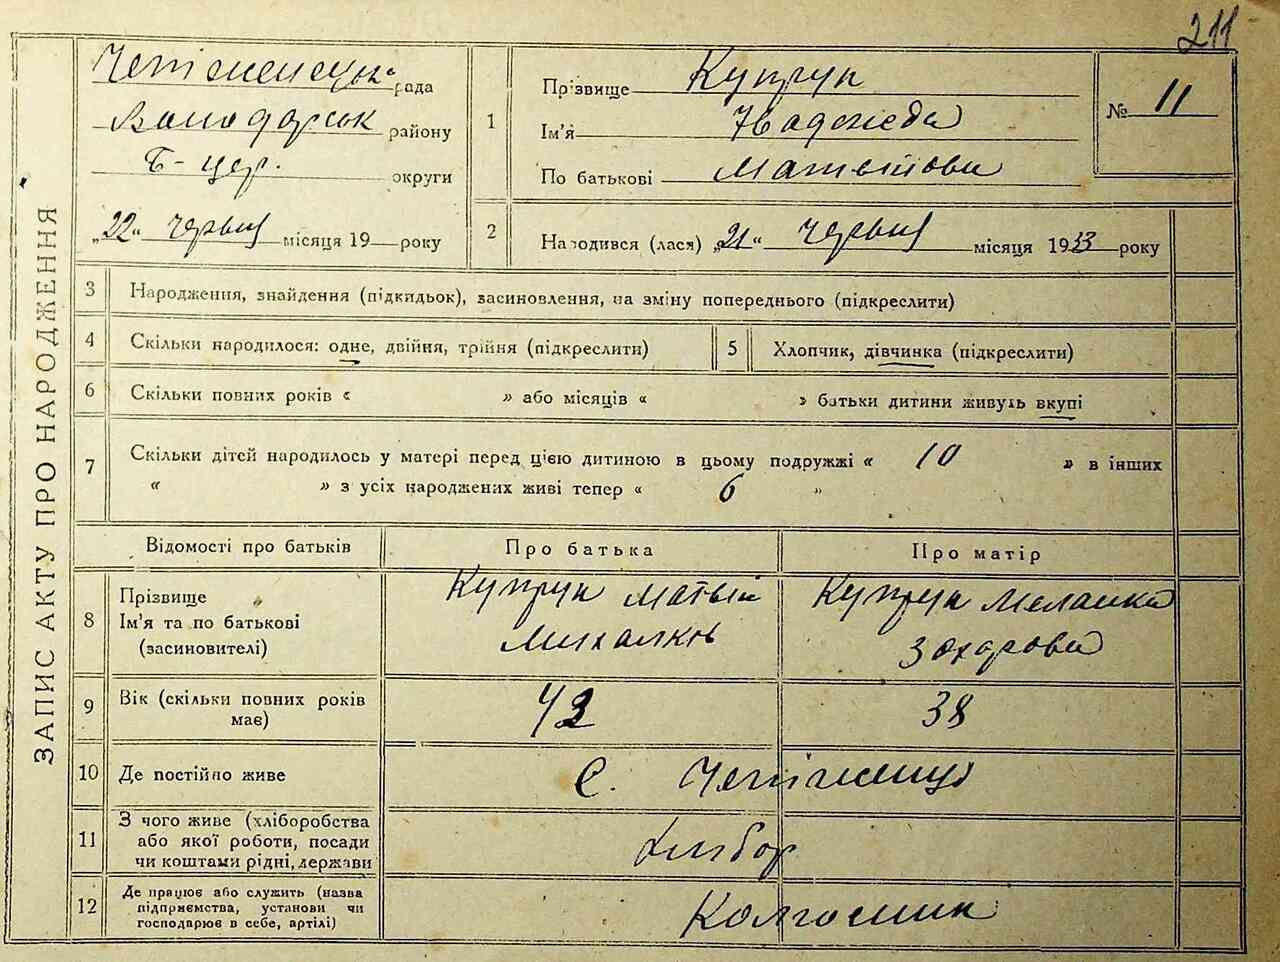 211
ЗАПИС АКТУ ПРО НАРОДЖЕННЯ
рада
Володарськ району
Б-цер. округи
„22" червня місяця 19 року
1
Прізвище Купрук
Ім'я Надежда
По батькові Матвійови
№ 11
2
Народився (лася) „21" червня місяця 1933 року
3
Народження, знайдення (підкидьок), засиновлення, на зміну попереднього (підкреслити)
4
Скільки народилося: одне, двійня, трійня (підкреслити)
5
Хлопчик, дівчинка (підкреслити)
6
Скільки повних років « » або місяців « » батьки дитини живуть вкупі
7
Скільки дітей народилось у матері перед цією дитиною в цьому подружжі « 10 » в інших
« » з усіх народжених живі тепер « 6 »
Відомості про батьків
Про батька
Про матір
8
Прізвище
Ім'я та по батькові
(засиновителі)
Купрук Матвій
Михалков
Купрук Меланка
Захарова
9
Вік (скільки повних років
має)
42
38
10
Де постійно живе
с. Чепіженці
11
З чого живе (хліборобства
або якої роботи, посади
чи коштами рідні, держави
Хлібор
12
Де працює або служить (назва
підприємства, установи чи
господарює в себе, артілі)
Колгоспник